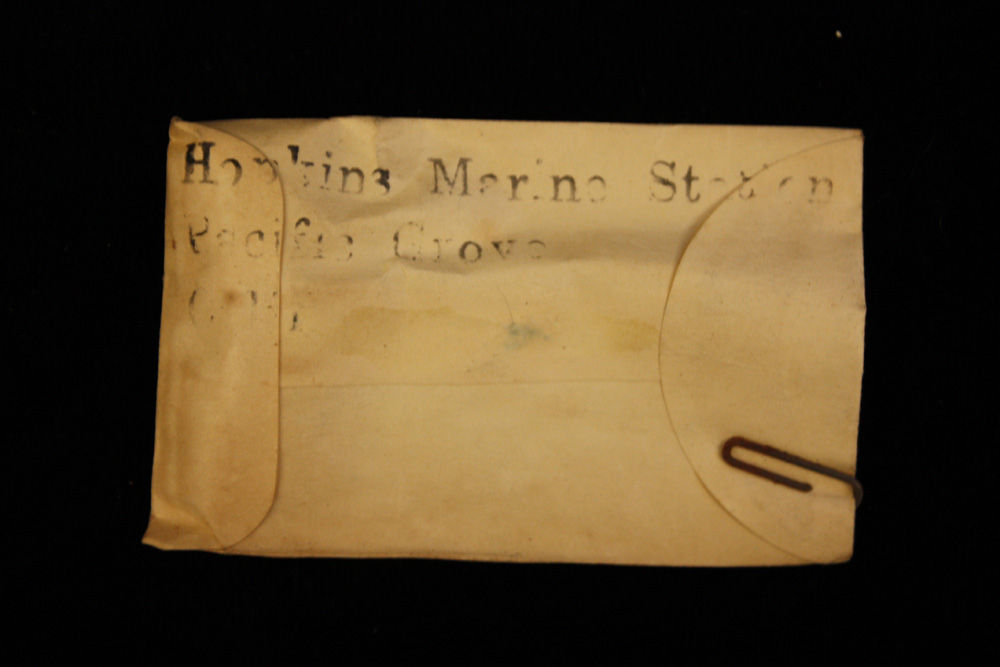 Hopkins Marine Station
Pacific Grove
Calif